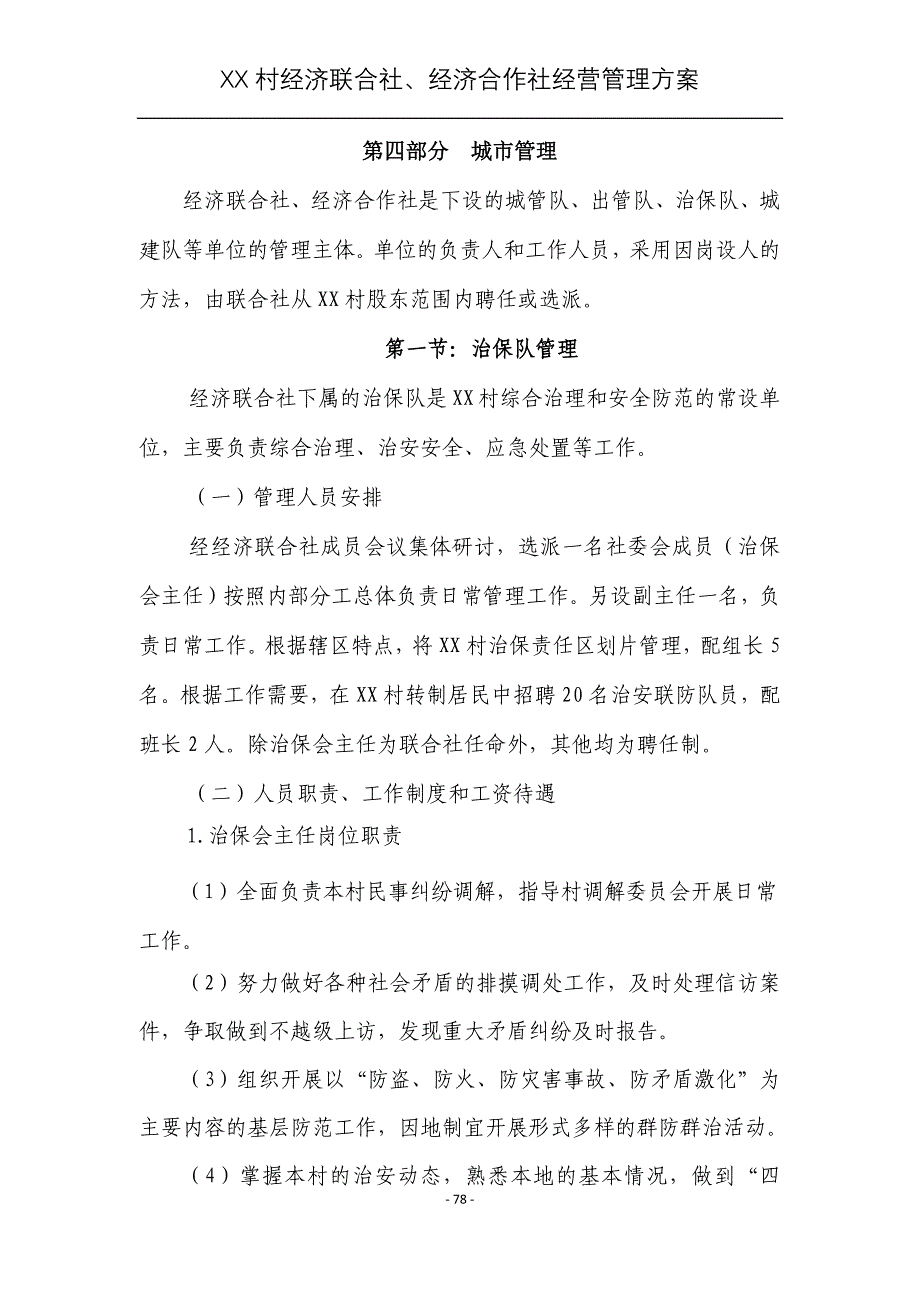 XX 村经济联合社、经济合作社经营管理方案
第四部分　城市管理
经济联合社、经济合作社是下设的城管队、出管队、治保队、城
建队等单位的管理主体。单位的负责人和工作人员，采用因岗设人的
方法，由联合社从 XX 村股东范围内聘任或选派。
第一节：治保队管理
经济联合社下属的治保队是 XX 村综合治理和安全防范的常设单
位，主要负责综合治理、治安安全、应急处置等工作。
（一）管理人员安排
经经济联合社成员会议集体研讨，选派一名社委会成员（治保
会主任）按照内部分工总体负责日常管理工作。另设副主任一名，负
责日常工作。根据辖区特点，将 XX 村治保责任区划片管理，配组长 5
名。根据工作需要，在 XX 村转制居民中招聘 20 名治安联防队员，配
班长 2 人。除治保会主任为联合社任命外，其他均为聘任制。
（二）人员职责、工作制度和工资待遇
1.治保会主任岗位职责
（1）全面负责本村民事纠纷调解，指导村调解委员会开展日常
工作。
（2）努力做好各种社会矛盾的排摸调处工作，及时处理信访案
件，争取做到不越级上访，发现重大矛盾纠纷及时报告。
（3）组织开展以“防盗、防火、防灾害事故、防矛盾激化”为
主要内容的基层防范工作，因地制宜开展形式多样的群防群治活动。
（4）掌握本村的治安动态，熟悉本地的基本情况，做到“四
- 78 -